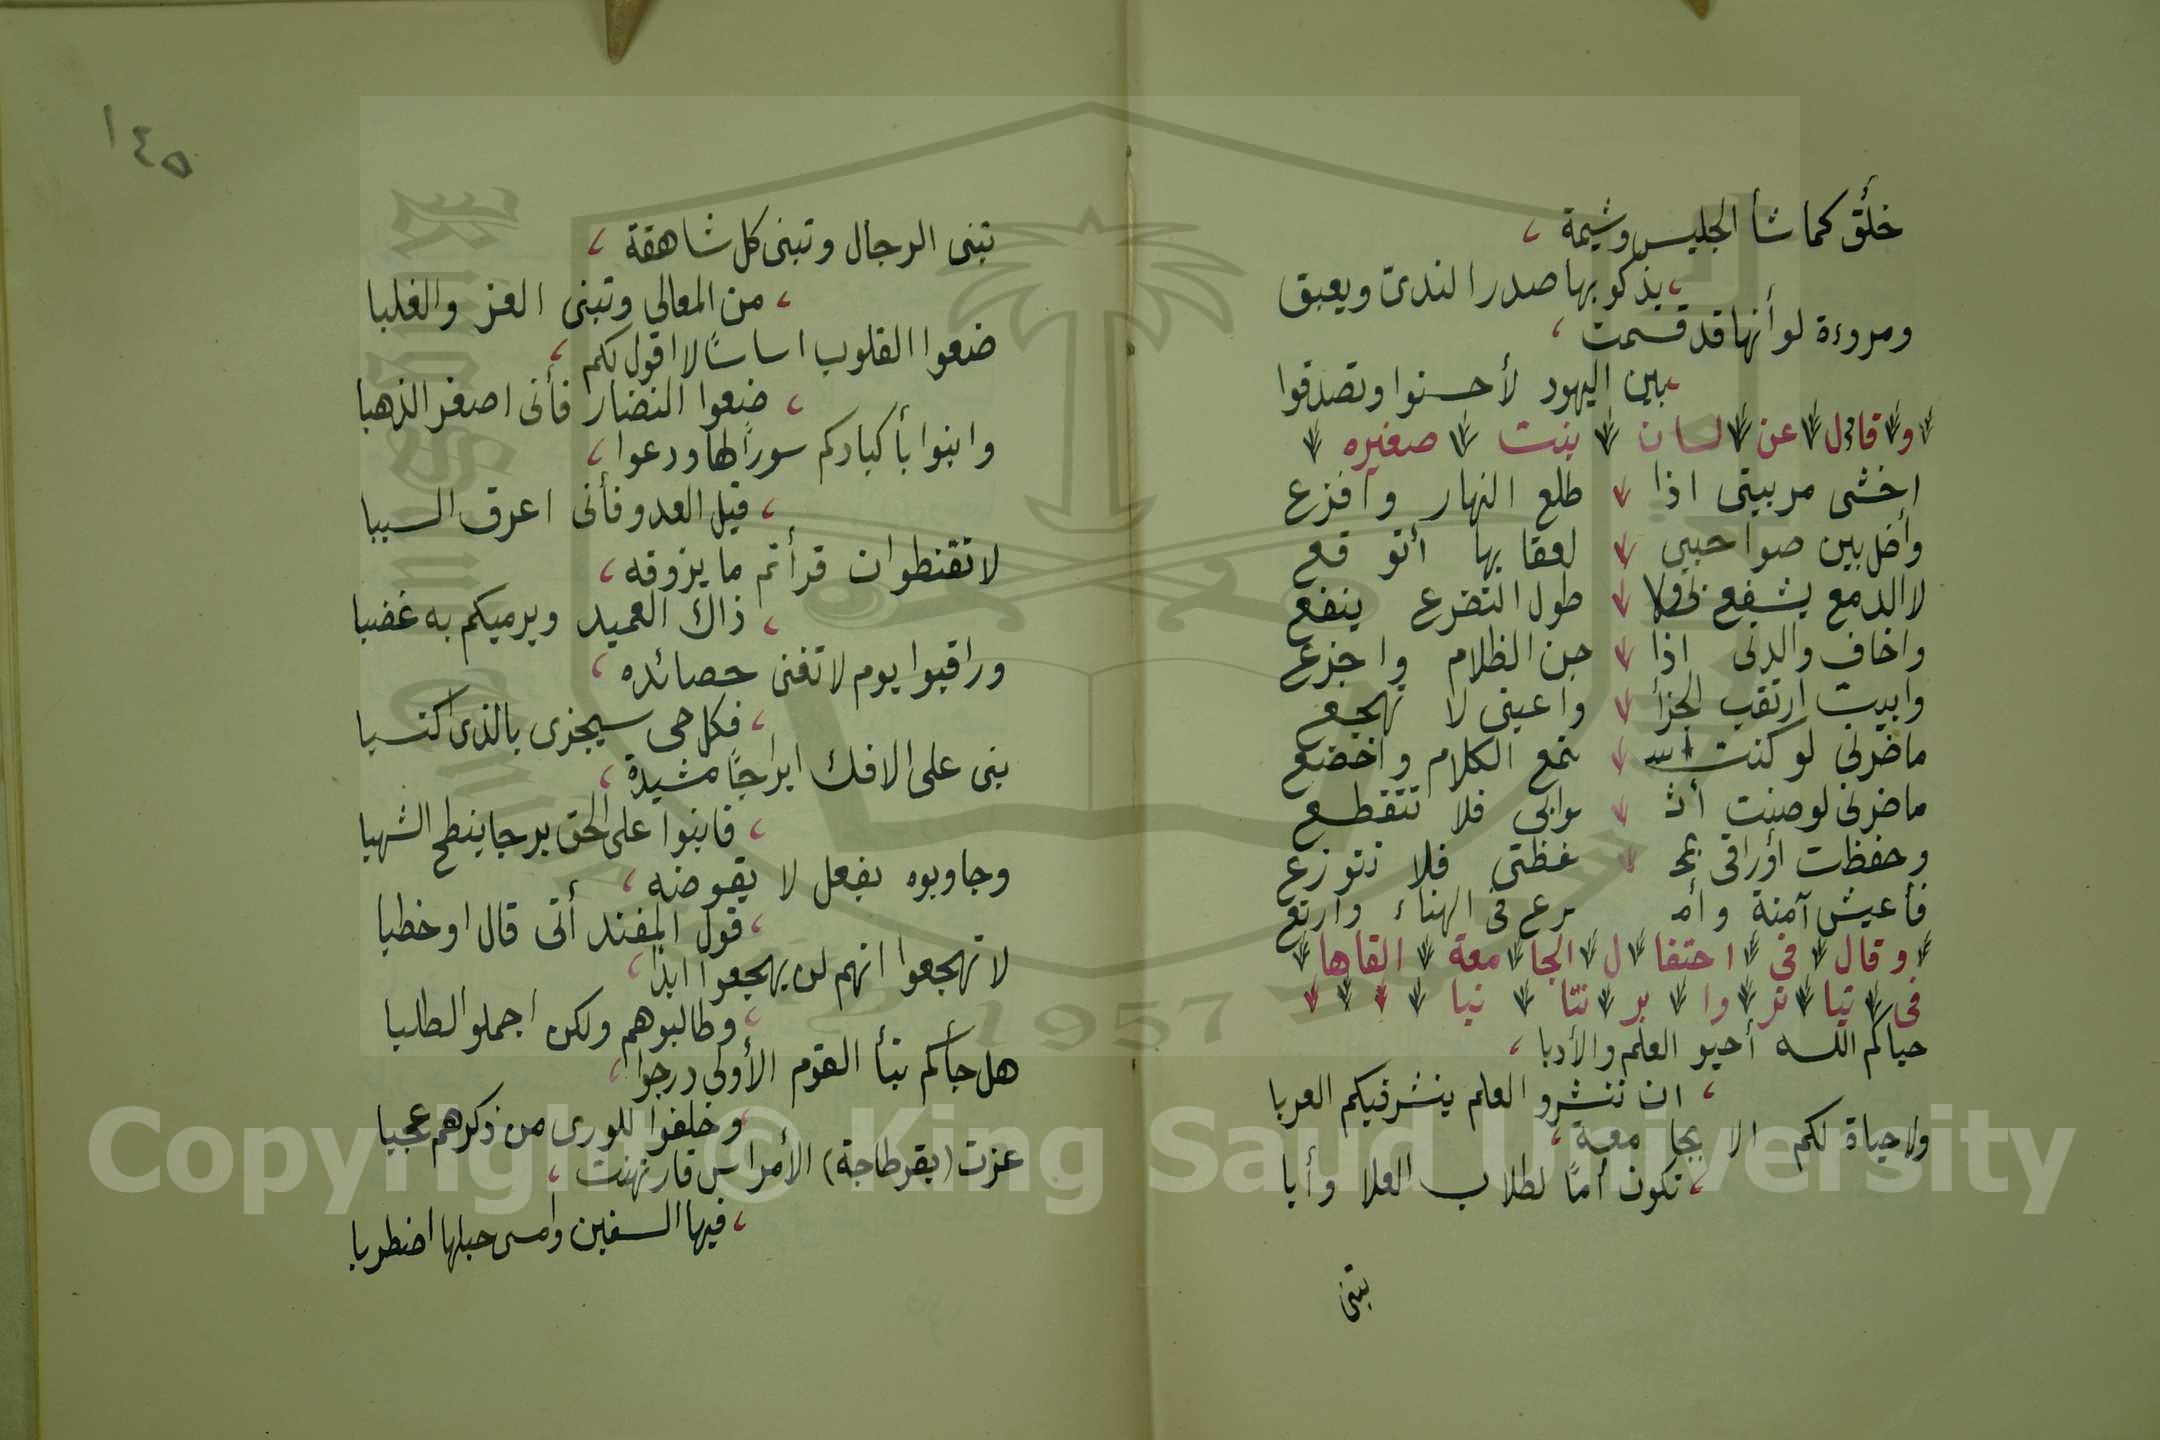 خلُق كما شأ الجليس وشيمة
يذكو بها صدر الندىّ ويعبق
ومروءة لو أنها قد قسمت
بين اليهود لأحسنوا وتصدقوا
وقال عن لسان بنت صغيره
اخشى مربيتى اذا طلع النهار وافزع
وأضل بين صواحبي لعقابها أتوقع
لا الدمع يشفع لى ولا طول التضرع ينفع
واخاف والدتى اذا جن الظلام واجزع
وابيت ارتقب الجزأ واعينى لا تهجع
ما ضرنى لو كنت اسـ تمع الكلام واخضع
ما ضرنى لو صنت أثـ وابى فلا تتقطع
وحفظت أوراقى بمحـ فظتى فلا تتوزع
فأعيش آمنة وأمـ رع فى الهناء وارتع
وقال فى احتفال الجامعة القاها
فى تياتروا برنتانيا
حياكم الله أحيو العلم والأدبا
ان تنشرو العلم ينشر فيكم العربا
ولا حياة لكم الا بجامعة
تكون أمًا لطلاب العلا وأبا
تبنى
١٤٥
تبنى الرجال وتبنى كل شاهقة
من المعالي وتبنى العز والغلبا
ضعوا القلوب اساسًا لا اقول لكم
ضعوا النضار فأنى اصغر الذهبا
وابنوا بأكبادكم سورًا لها ودعوا
قيل العدو فأنى اعرف السببا
لا تقنطوا ان قرأتم ما يزوقه
ذاك العميد ويرميكم به غضبا
وراقبوا يوم لا تغنى حصائده
فكل حى سيجزى بالذى اكتسبا
بنى على الافك ابراجًا مشيدة
فابنوا على الحق برجا ينطح الشهبا
وجاوبوه بفعل لا يقوضه
قول المفند أنى قال او خطبا
لا تهجعوا انهم لن يهجعوا ابدًا
وطالبوهم ولكن اجملو الطلبا
هل جأكم نبأ القوم الأولى درجوا
وخلفوا للورى من ذكرهم عجبا
عزت (بقرطاجة) الأمراس فارتهنت
فيها السفين وامسى حبلها اضطربا
1957
Copyright © King Saud University